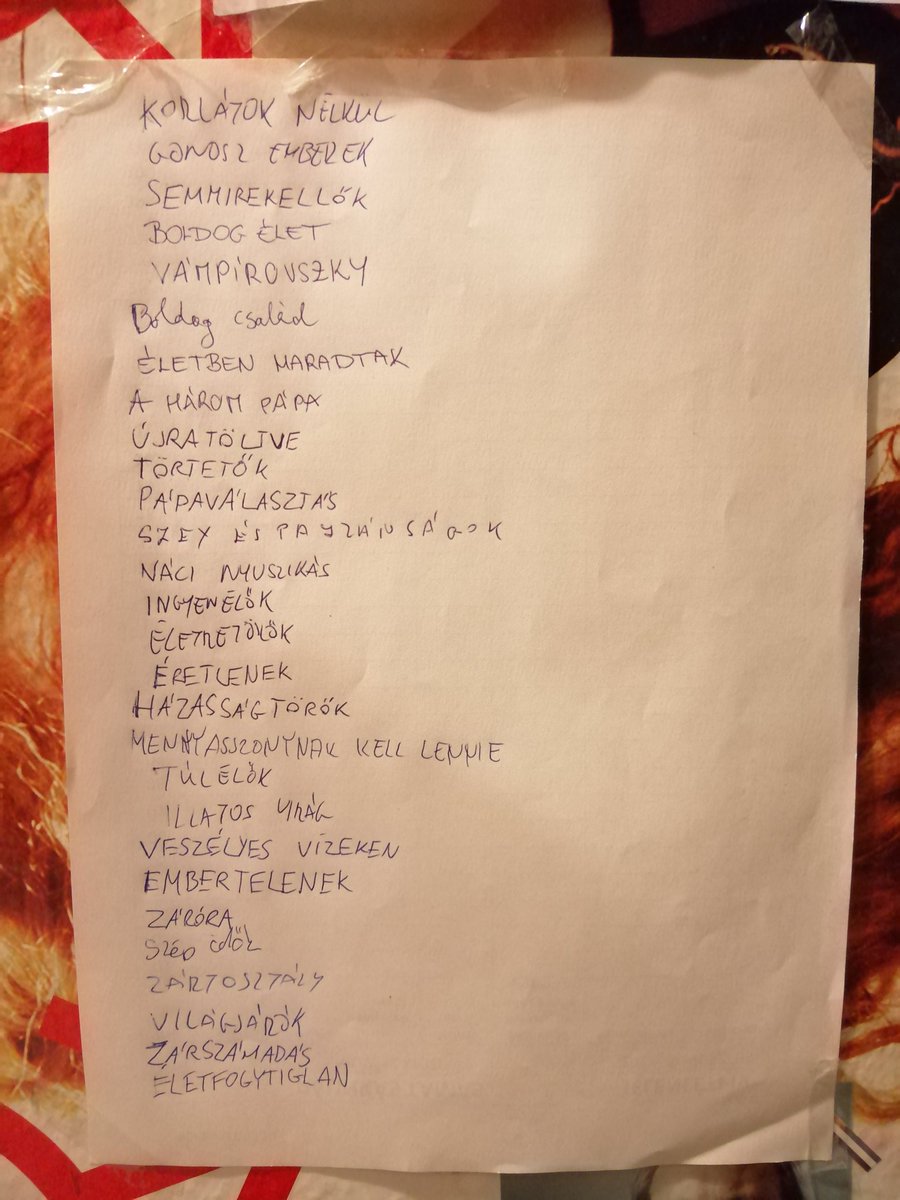 KORLÁTOK NÉLKÜL
GONOSZ EMBEREK
SEMMIREKELLŐK
BOLDOG ÉLET
VÁMPÍROVSZKY
Boldog család
ÉLETBEN MARADTAK
A HÁROM PÁPA
ÚJRATÖLTVE
TÖRTETŐK
PÁPAVÁLASZTÁS
SZEX ÉS PAJZÁNSÁGOK
NÁCI NYUSZIKÁS
INGYENÉLŐK
ÉLETRETÖRŐK
ÉRETLENEK
HÁZASSÁGTÖRŐK
MENNYASSZONYNAK KELL LENNIE
TÚLÉLŐK
ILLATOS VIRÁG
VESZÉLYES VIZEKEN
EMBERTELENEK
ZÁRÓRA
Szép idők
ZÁRTOSZTÁLY
VILÁGJÁRÓK
ZÁRSZÁMADÁS
ÉLETFOGYTIGLAN